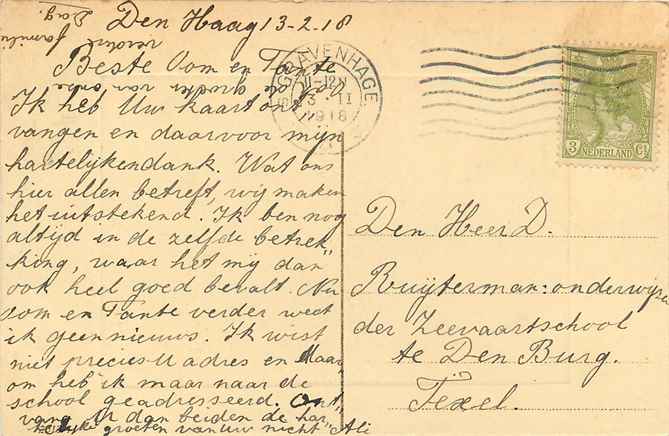 Den Haag 13-2-18
Beste Oom en Tante
Ik heb Uw kaart ont
vangen en daarvoor mijn
hartelijken dank. Wat ons
hier allen betreft, wij maken
het uitstekend. Ik ben nog
altijd in de zelfde betrek"
king, waar het mij dan"
ook heel goed bevalt. Nu
oom en Tante verder weet
ik geen nieuws. Ik wist
niet precies U adres en daar"
om heb ik maar naar de
school geadresseerd. Ont"
vang U dan beiden de har"
groeten van uw nicht Ali
familie
'S GRAVENHAGE
11-12N
13 II
1918
3 Ct
NEDERLAND
Den Heer D.
Ruijterman: onderwijzer
der Zeevaartschool
te Den Burg.
Texel.